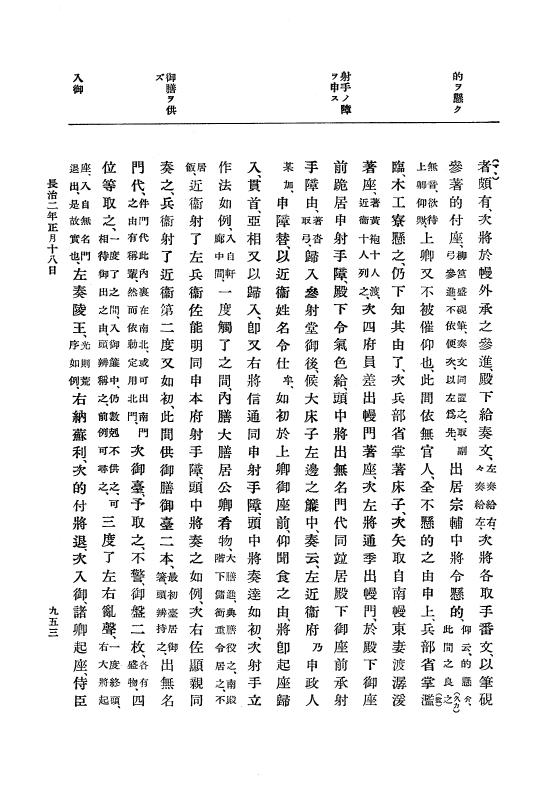 的ヲ懸ク
射手ノ障
ヲ申ス
御膳ヲ供
ズ
入御
者頗有、次將於幔外承之參進、殿下給奏文、左奏給右、々奏給左、次將各取手番文、以筆硯
參著的付座、柳筥盛硯筆、奏文同置之、取副弓參進、不依便次、以左爲先、出居宗輔中將令懸的、仰云、的懸ケ、此間之良之
無音、欲待上卿仰歟、上卿又不被催仰也、此間依無官人、全不懸的之由申上、兵部省掌濫
臨、木工寮懸之、仍下知其由了、次兵部省掌著床子、次矢取自南幔東妻渡潺湲
著座、著黃袍十人渡、近衞十人列之、次四府員差出幔門著座、次左將通季出幔門、於殿下御座
前跪居申射手障、殿下令氣色給、頭中將出無名門代同竝居殿下御座前承射
手障由、著沓取弓、歸入參射堂御後、候大床子左邊之簾中、奏云、左近衞府乃申政人
某加、申障替、以近衞姓名令仕牟、如初於上卿御座前、仰聞食之由、將卽起座歸
入、貫首、亞相又以歸入、卽又右將信通同申射手障、頭中將奏達如初、次射手立
作法如例、入自軒廊中間、一度觸了之間、內膳大膳居公卿肴物、大膳進、典膳役之、南殿階下儲衞重令居之、不
居飯、近衞射了、左兵衞佐能明同申本府射手障、頭中將奏之如例、次右佐顯親同
奏之、兵衞射了、近衞第二度又如初、此間供御膳御臺二本、最初臺居御箸、頭辨持之、出無名
門代、件門代此內裏在南北、或可出南門之由有稱輩、然而依勅定用北門、次御臺、予取之、不警、御盤二枚、各有盛物、四
位等取之、一度了之間、入御簾中、仍數尅不供之、可相待御出之由、頭辨稱之、前例可尋之、三度了左右亂聲、一度終頭、右大將起
座、入自無名門退出、是故實也、左奏陵王、光則荒序如例、右納蘇利、次的付將退、次入御、諸卿起座、侍臣
長治二年正月十八日
九五三